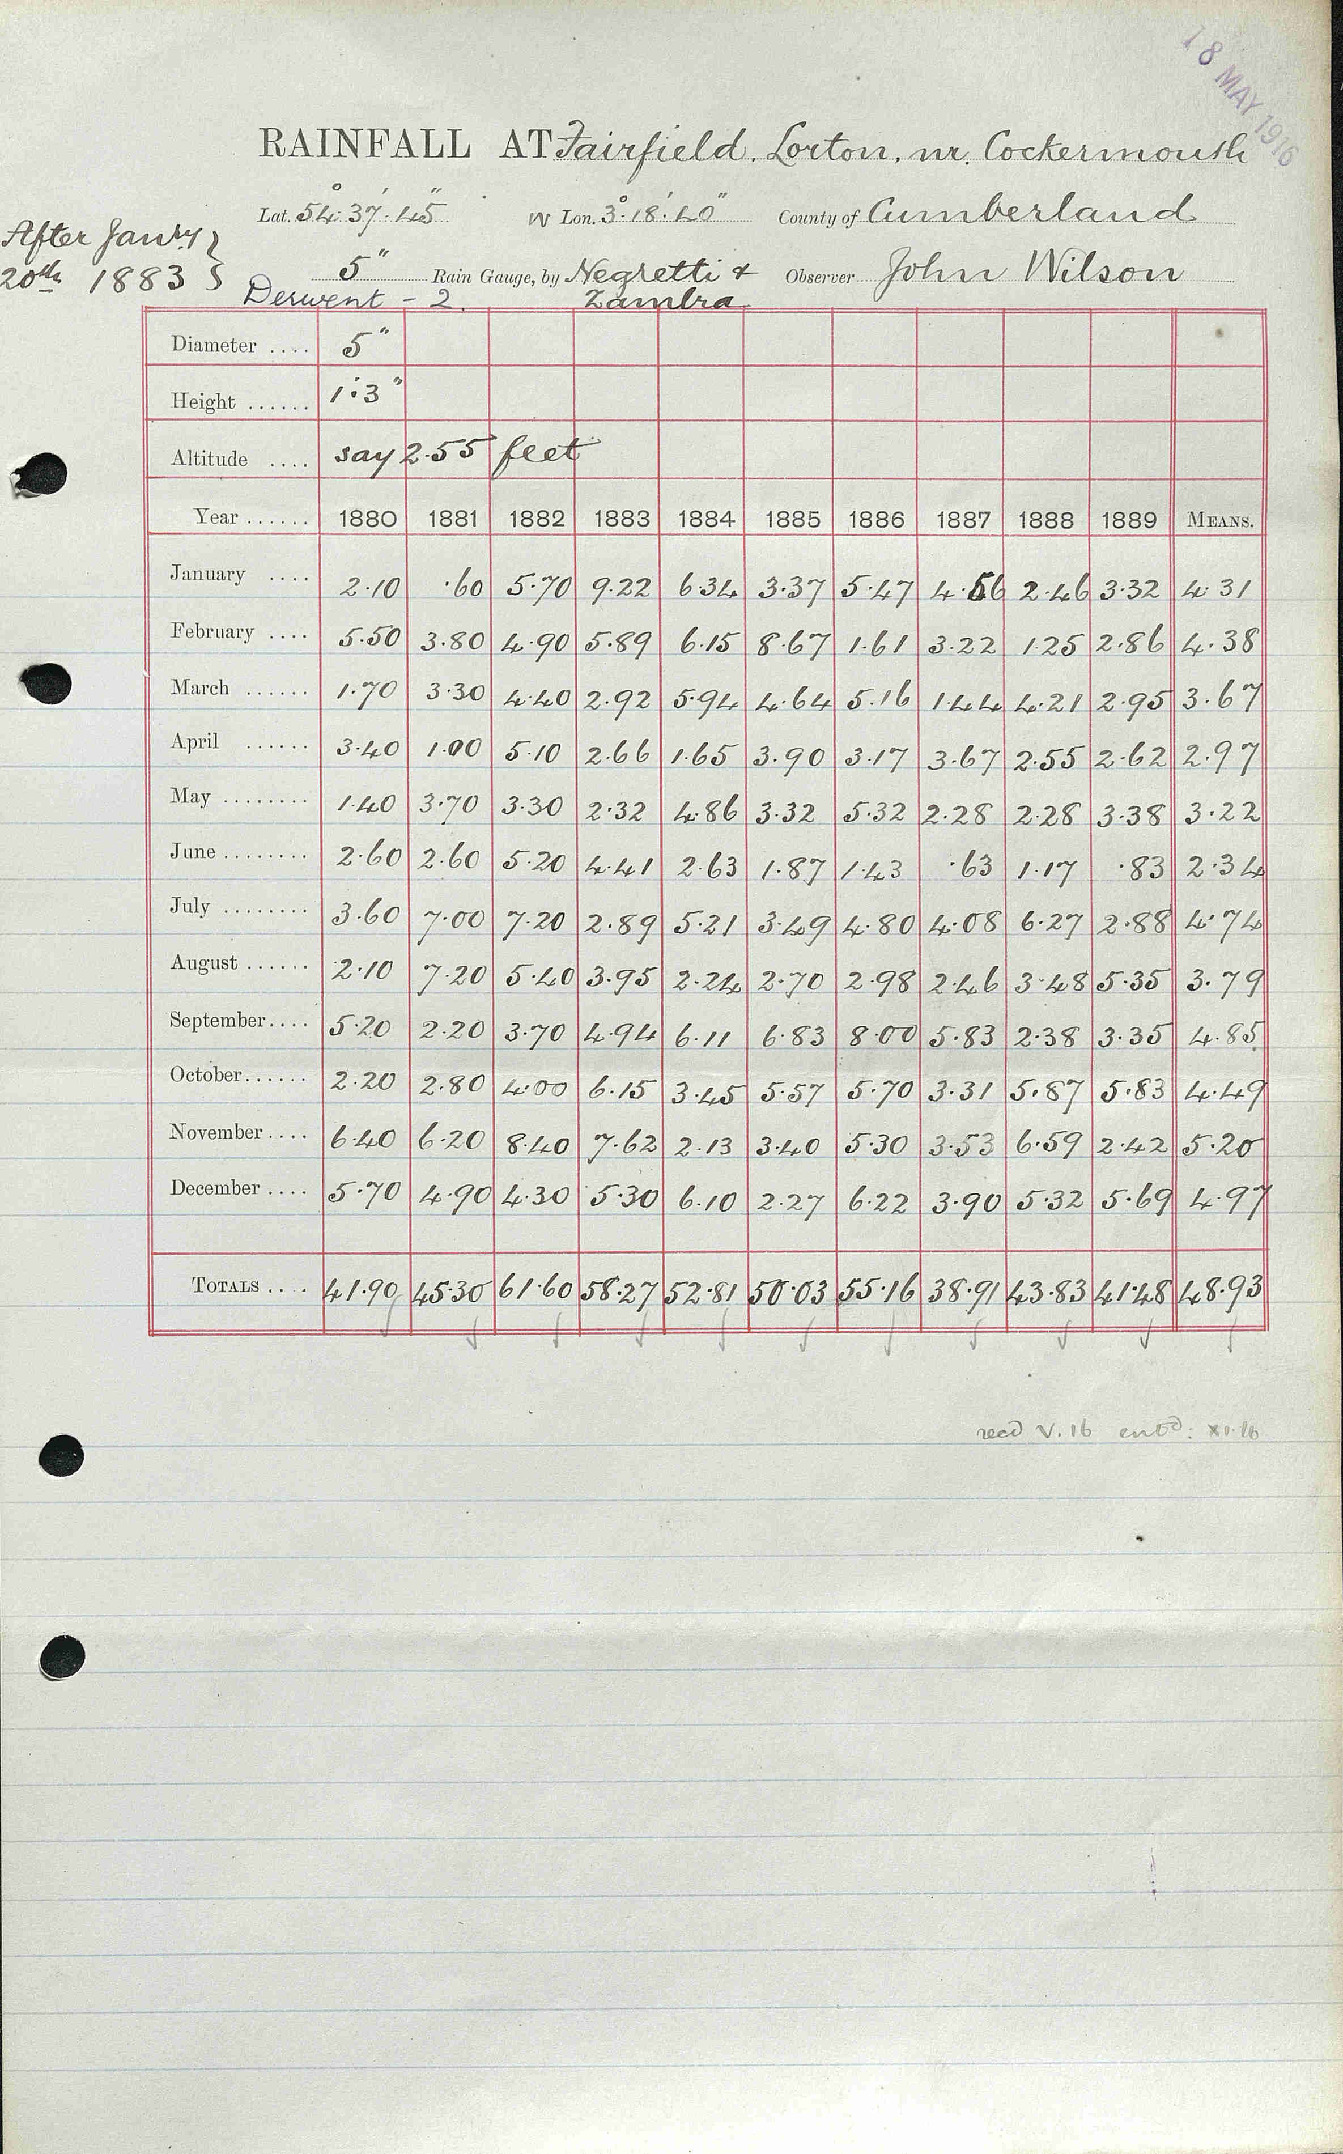 18 MAY 1916
RAINFALL AT Fairfield, Lorton, nr. Cockermouth
Lat. 54°.37'.45" W Lon. 3°.18'.40" County of Cumberland
After Janry 20th 1883 }
5" Rain Gauge, by Negretti & Zambra Observer John Wilson
Derwent - 2.
Diameter .... 5"
Height ...... 1'.3"
Altitude .... say 255 feet
Year ...... 1880 1881 1882 1883 1884 1885 1886 1887 1888 1889 MEANS.
January .... 2.10 .60 5.70 9.22 6.34 3.37 5.47 4.56 2.46 3.32 4.31
February .... 5.50 3.80 4.90 5.89 6.15 8.67 1.61 3.22 1.25 2.86 4.38
March ...... 1.70 3.30 4.40 2.92 5.94 4.64 5.16 1.44 4.21 2.95 3.67
April ...... 3.40 1.00 5.10 2.66 1.65 3.90 3.17 3.67 2.55 2.62 2.97
May ........ 1.40 3.70 3.30 2.32 4.86 3.32 5.32 2.28 2.28 3.38 3.22
June ........ 2.60 2.60 5.20 4.41 2.63 1.87 1.43 .63 1.17 .83 2.34
July ........ 3.60 7.00 7.20 2.89 5.21 3.49 4.80 4.08 6.27 2.88 4.74
August ...... 2.10 7.20 5.40 3.95 2.24 2.70 2.98 2.46 3.48 5.35 3.79
September.... 5.20 2.20 3.70 4.94 6.11 6.83 8.00 5.83 2.38 3.35 4.85
October...... 2.20 2.80 4.00 6.15 3.45 5.57 5.70 3.31 5.87 5.83 4.49
November.... 6.40 6.20 8.40 7.62 2.13 3.40 5.30 3.53 6.59 2.42 5.20
December .... 5.70 4.90 4.30 5.30 6.10 2.27 6.22 3.90 5.32 5.69 4.97
TOTALS .... 41.90 45.30 61.60 58.27 52.81 50.03 55.16 38.91 43.83 41.48 48.93
recd V.16 entd: XI.16